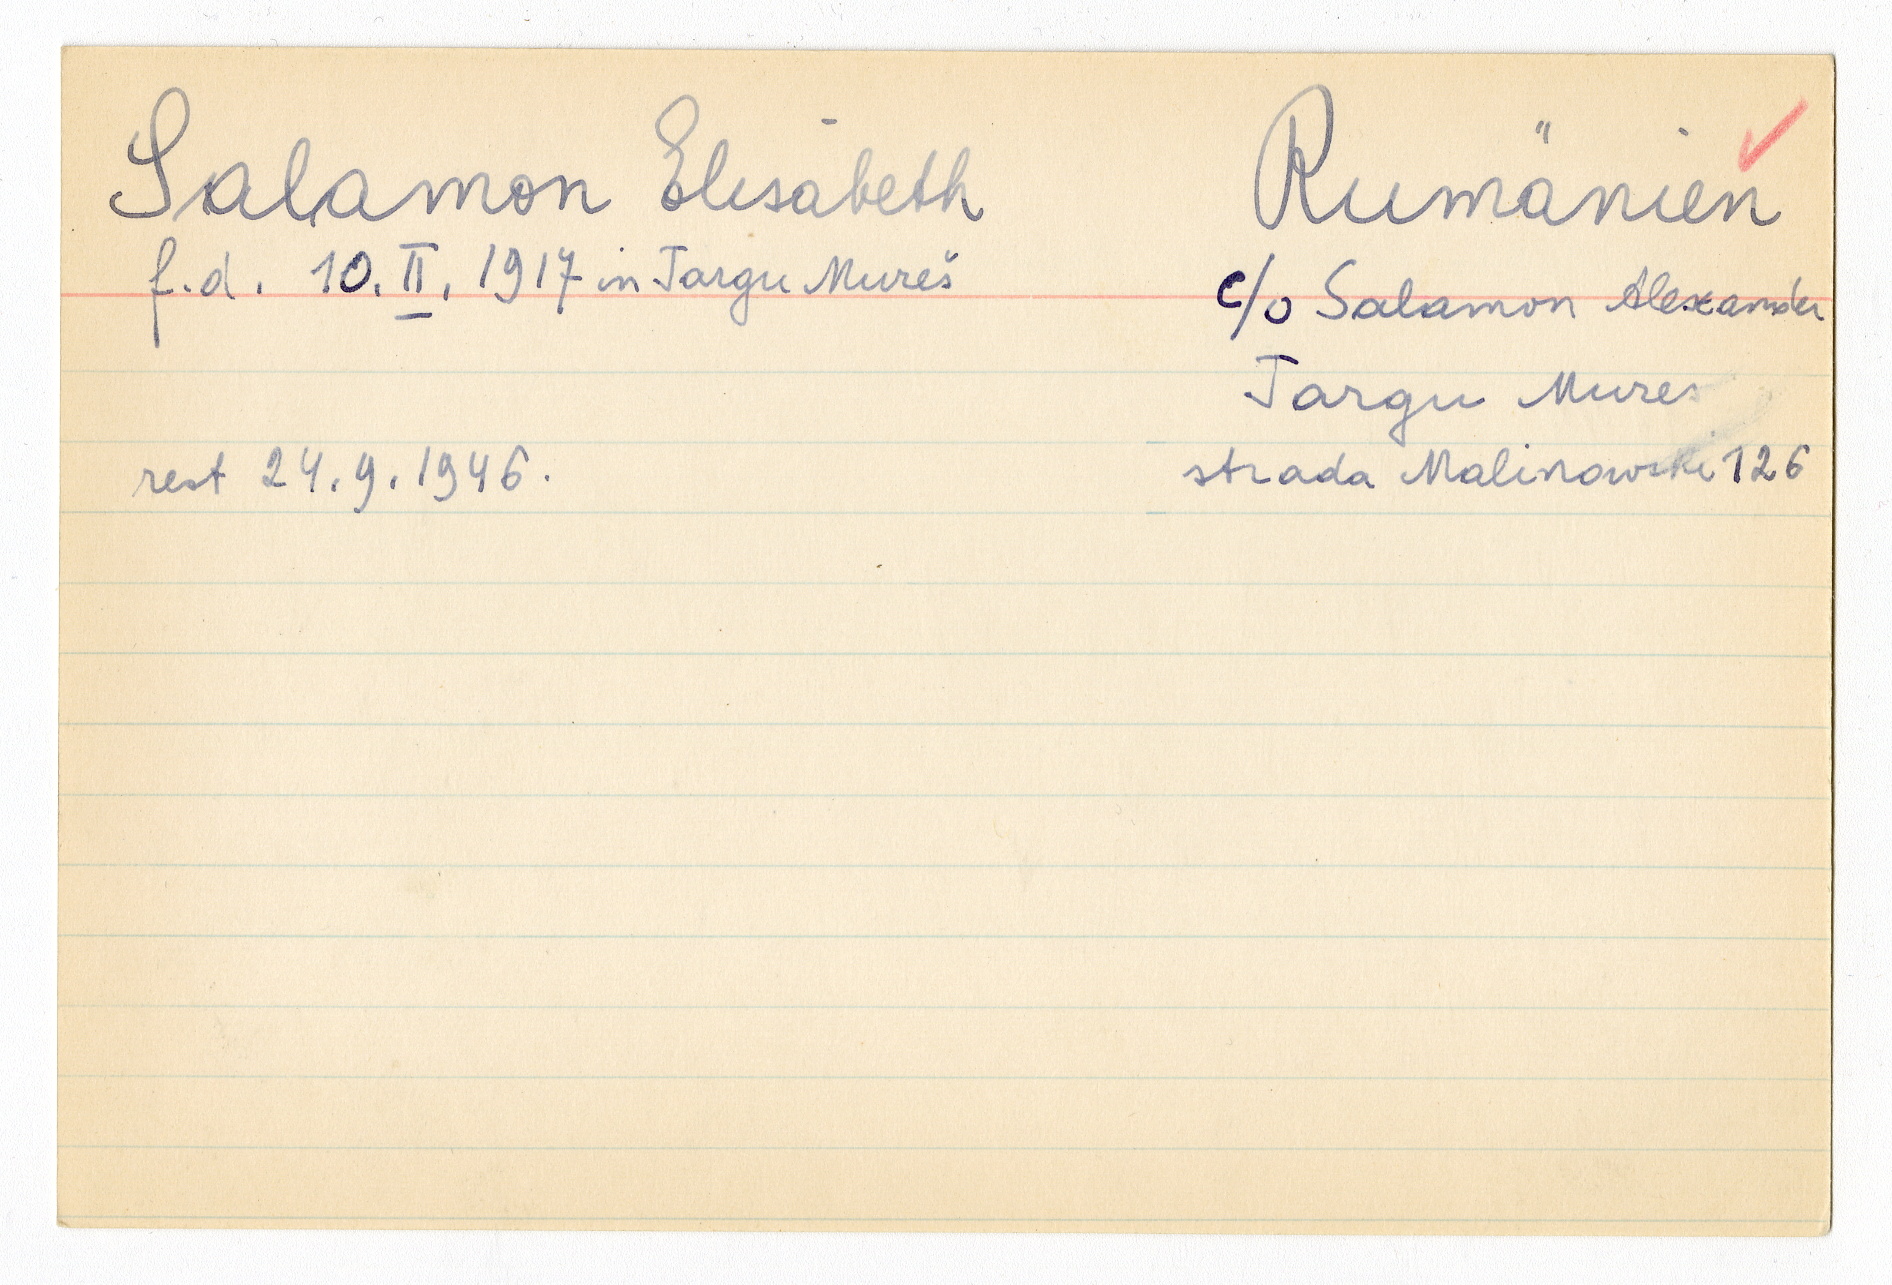 Salamon Elisabeth
f.d. 10. II. 1917 in Targu Mureš
rest 24.9.1946.
Rumänien
c/o Salamon Alexander
Targu Mures
strada Malinowski 126